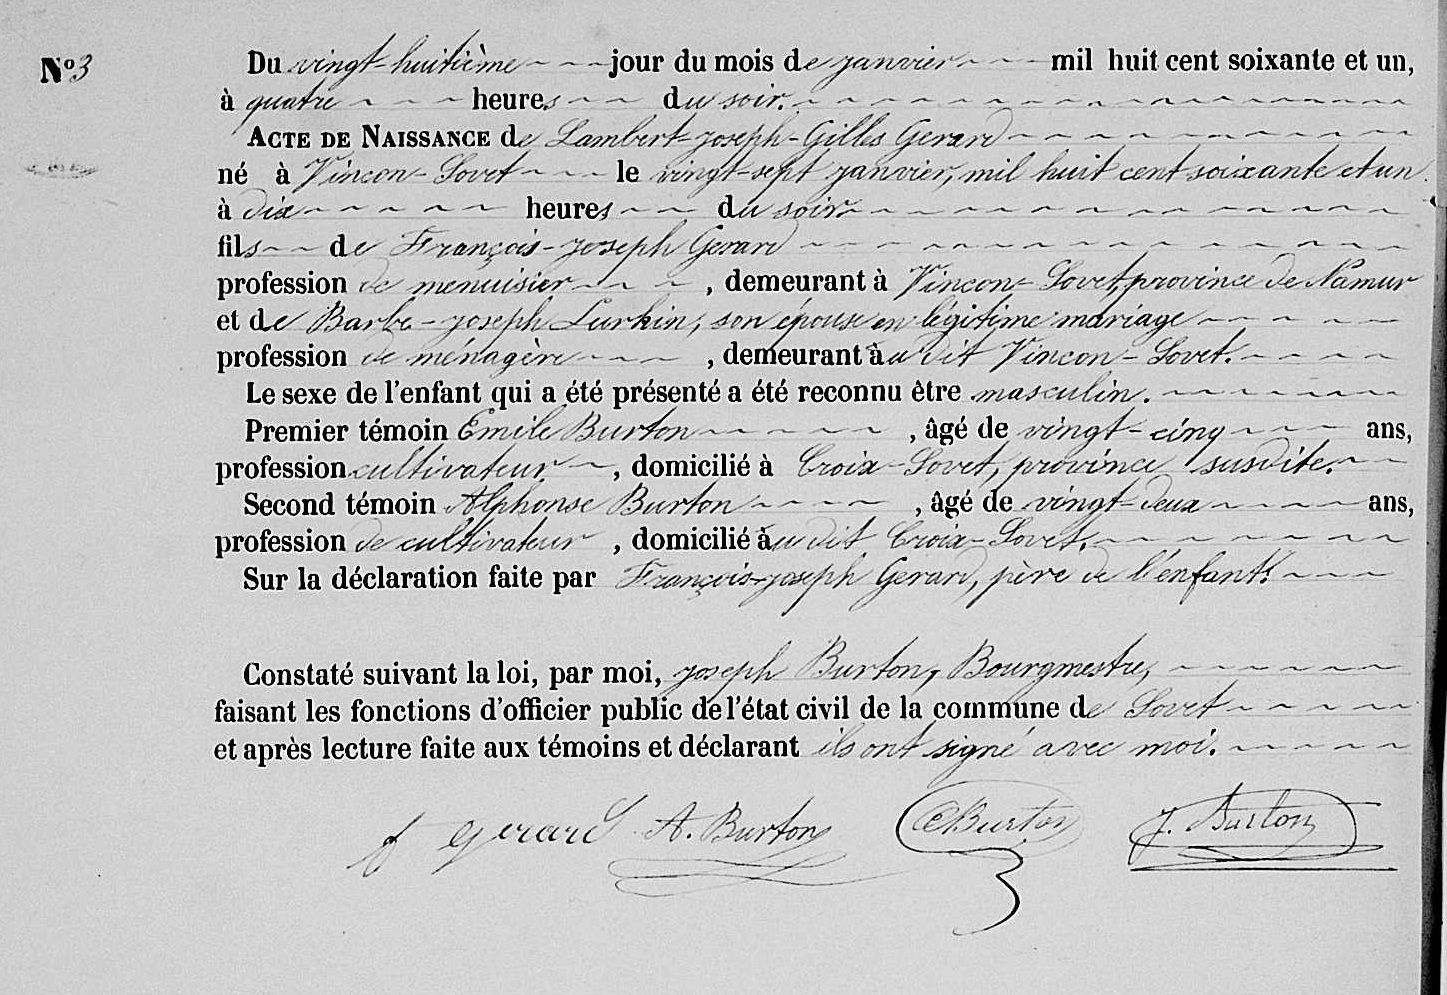 N° 3
Du vingt-huitième jour du mois de janvier mil huit cent soixante et un,
à quatre heures du soir.
ACTE DE NAISSANCE de Lambert-Joseph-Gilles Gerard
né à Vincon-Sovet le vingt-sept janvier, mil huit cent soixante et un
à dix heures du soir
fils de François-Joseph Gerard
profession de menuisier, demeurant à Vincon-Sovet, province de Namur
et de Barbe-Joseph Lurkin, son épouse en légitime mariage
profession de ménagère, demeurant àu dit Vincon-Sovet.
Le sexe de l'enfant qui a été présenté a été reconnu être masculin.
Premier témoin Emile Burton, âgé de vingt-cinq ans,
profession cultivateur, domicilié à Croix-Sovet, province susdite.
Second témoin Alphonse Burton, âgé de vingt-deux ans,
profession de cultivateur, domicilié àu dit Croix-Sovet.
Sur la déclaration faite par François-Joseph Gerard, père de l'enfant.
Constaté suivant la loi, par moi, Joseph Burton, Bourgmestre,
faisant les fonctions d'officier public de l'état civil de la commune de Sovet
et après lecture faite aux témoins et déclarant ils ont signé avec moi.
f gerard A. Burton E Burton J. Burton